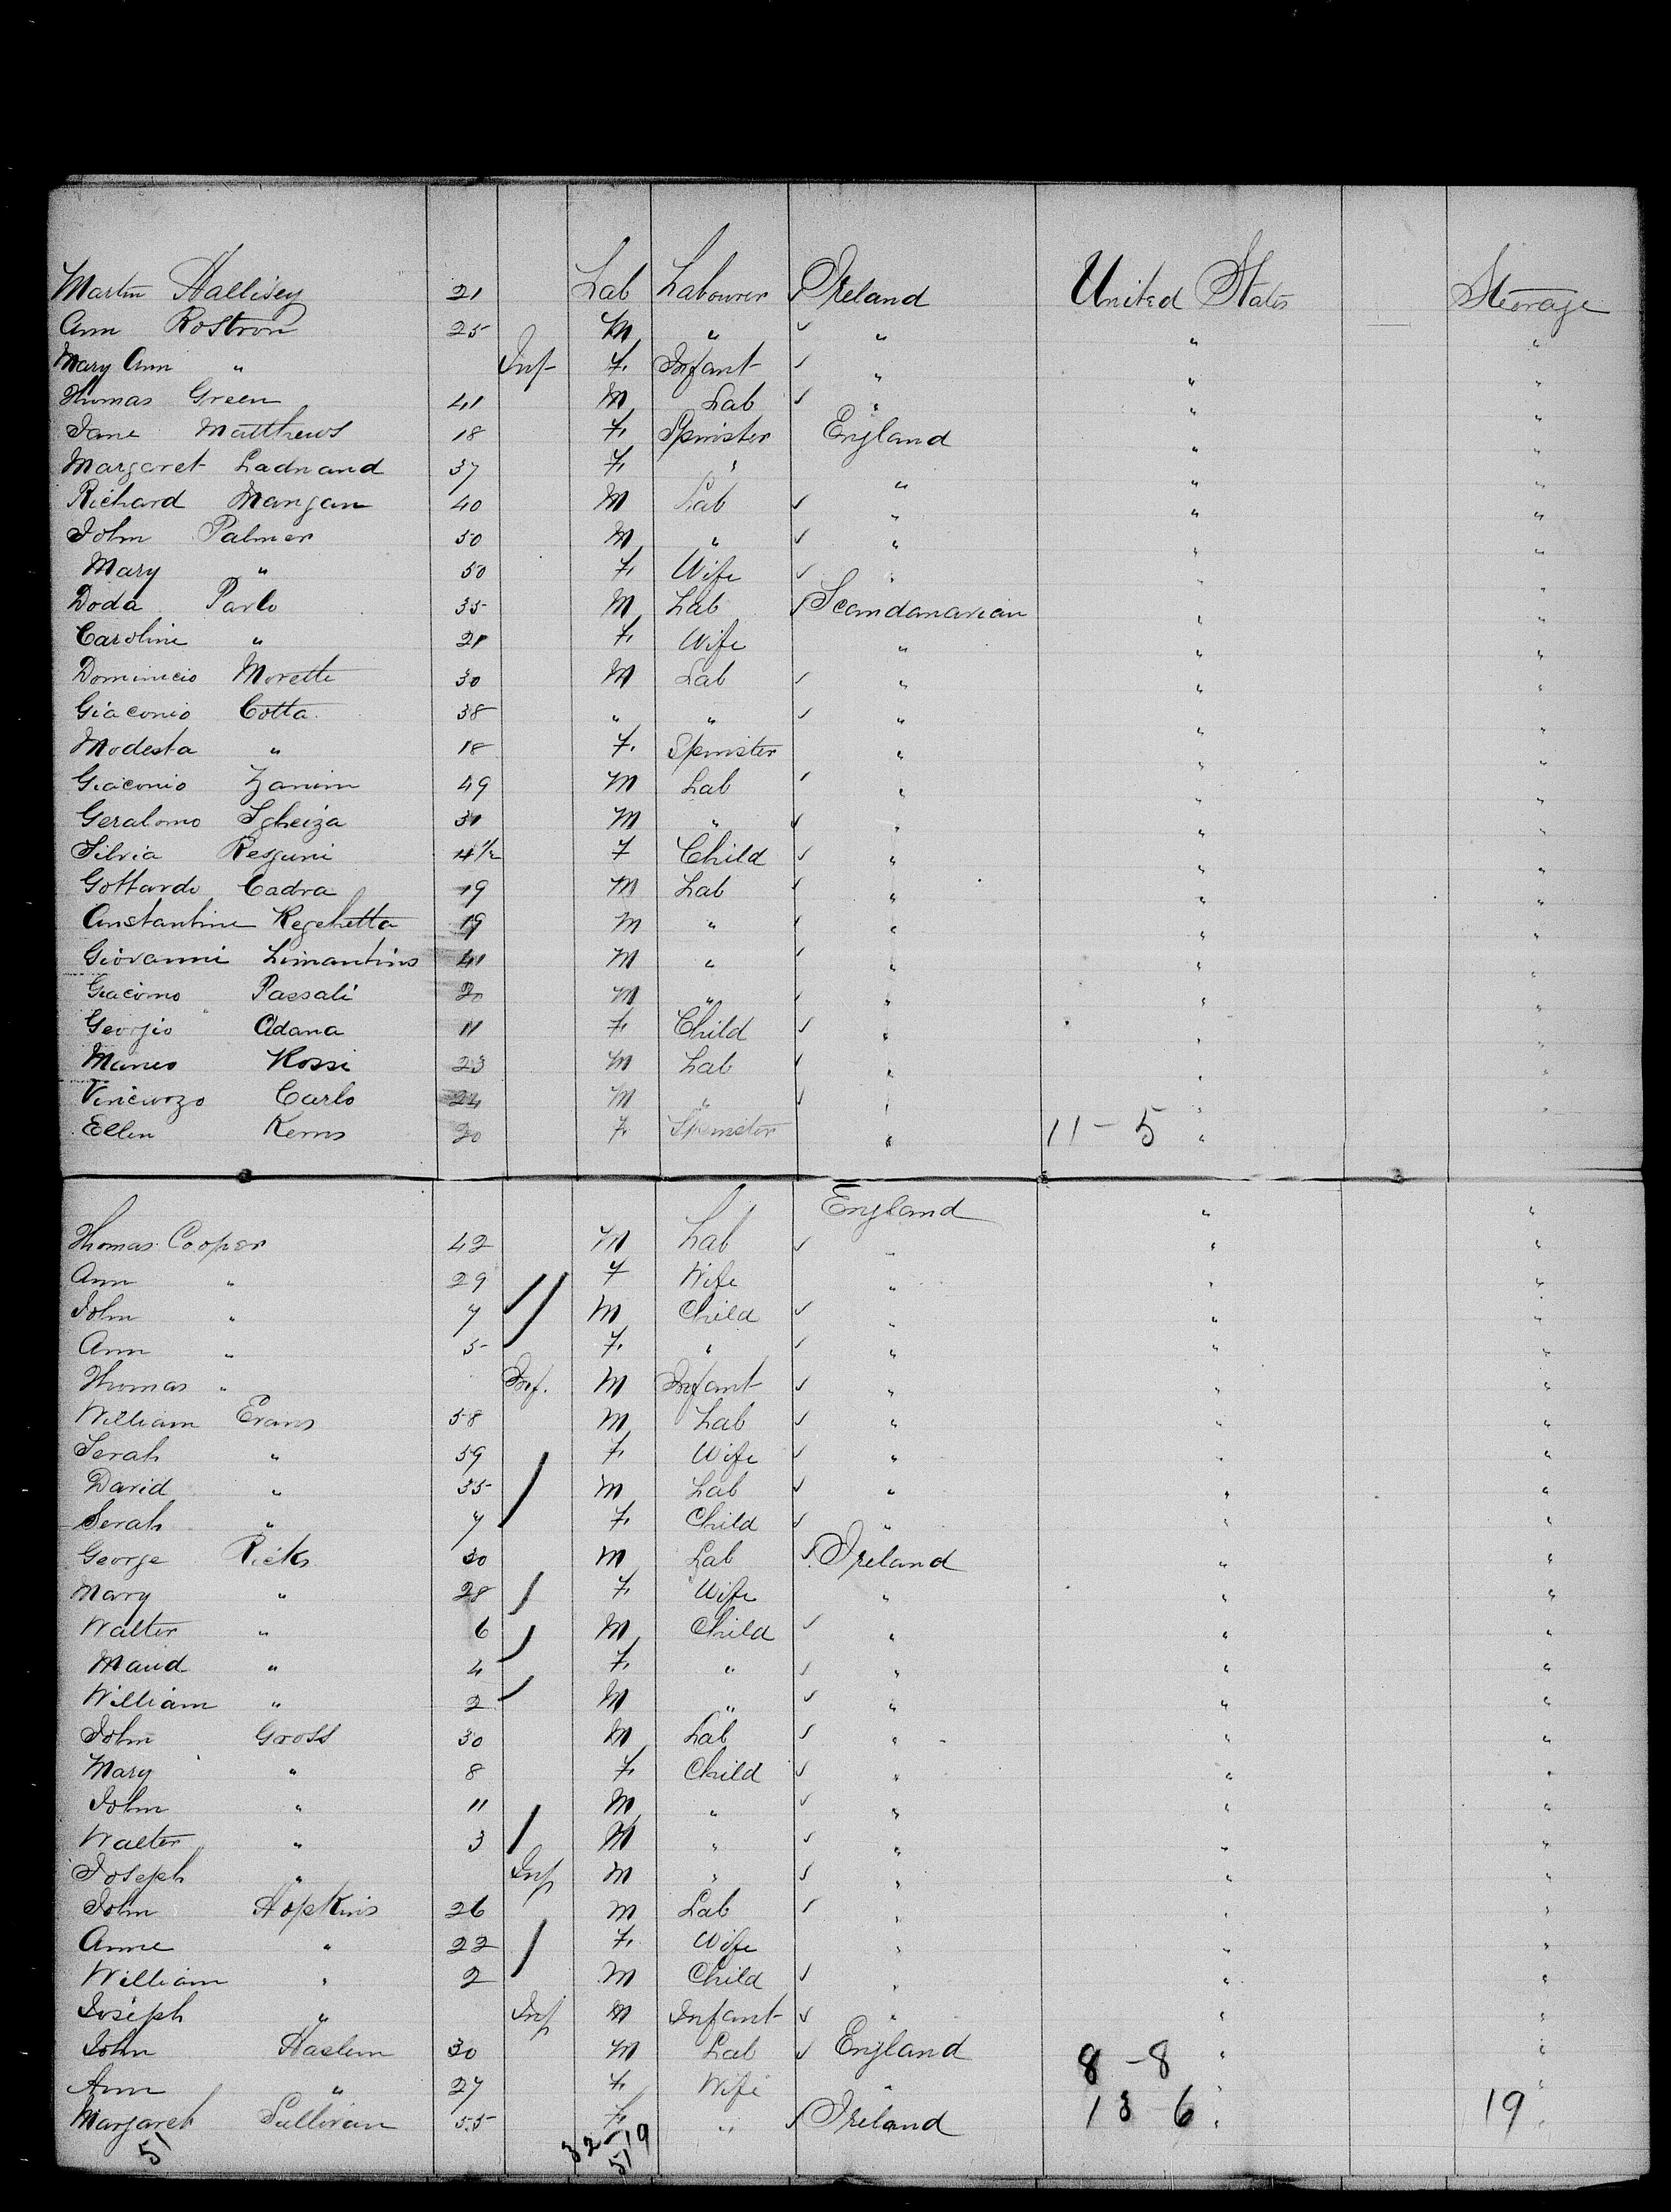 Martin Hallisey 21 Lab Labourer ✓ Ireland United States Steerage
Ann Rostron 25 M " ✓ " " "
Mary Ann " Inf F. Infant ✓ " " "
Thomas Green 41 M Lab ✓ " " "
Jane Matthews 18 F. Spinster England " "
Margaret Ladnand 37 F. " " " "
Richard Mangan 40 M Lab ✓ " " "
John Palmer 50 M " ✓ " " "
Mary " 50 F. Wife ✓ " " "
Doda Parlo 35 M Lab ✓ Scandanavian " "
Caroline " 21 F. Wife " " "
Dominicio Morette 30 M Lab ✓ " " "
Giaconio Cotta 38 " " ✓ " " "
Modesta " 18 F. Spinster " " "
Giaconio Zanim 49 M Lab ✓ " " "
Geralomo Igheiza 31 M " ✓ " " "
Silvia Resguni 4 1/2 F Child ✓ " " "
Gottardo Cadra 19 M Lab ✓ " " "
Anstantine Regehetta 19 M " ✓ " " "
Giovanni Limantins 41 M " ✓ " " "
Giacomo Paesali 20 M " ✓ " " "
Georgio Adana 11 F. Child ✓ " " "
Maneo Rossi 23 M Lab ✓ " " "
Carlo 24 M " ✓ " " "
Ellen Kerns 20 F. Spinster " 11 - 5 "
England " "
Thomas Cooper 42 M Lab ✓ " " "
Ann " 29 F Wife " " "
John " 7 M Child ✓ " " "
Ann " 5 F. " ✓ " " "
Thomas " Inf. M Infant ✓ " " "
William Evans 58 M Lab ✓ " " "
Serah " 59 F. Wife ✓ " " "
David " 35 M Lab ✓ " " "
Serah " 7 F. Child ✓ " " "
George Ricks 30 M Lab ✓ Ireland " "
Mary " 28 F. Wife " " "
Walter " 6 M Child ✓ " " "
Maud " 4 F. " ✓ " " "
William " 2 M " ✓ " " "
John Gross 30 M Lab ✓ " " "
Mary " 8 F. Child ✓ " " "
John " 11 M " ✓ " " "
Walter " 3 M " ✓ " " "
Joseph " Inf M " ✓ " " "
John Hopkins 26 M Lab ✓ " " "
Anne " 22 F. Wife " " "
William " 2 M Child ✓ " " "
Joseph " Inf M Infant ✓ " " "
John Haslem 30 M Lab ✓ England 8 - 8 " "
Ann " 27 F. Wife " " "
Margaret Sullivan 55 F. " ✓ Ireland 13 6 " 19 "
51 32 - 19
51